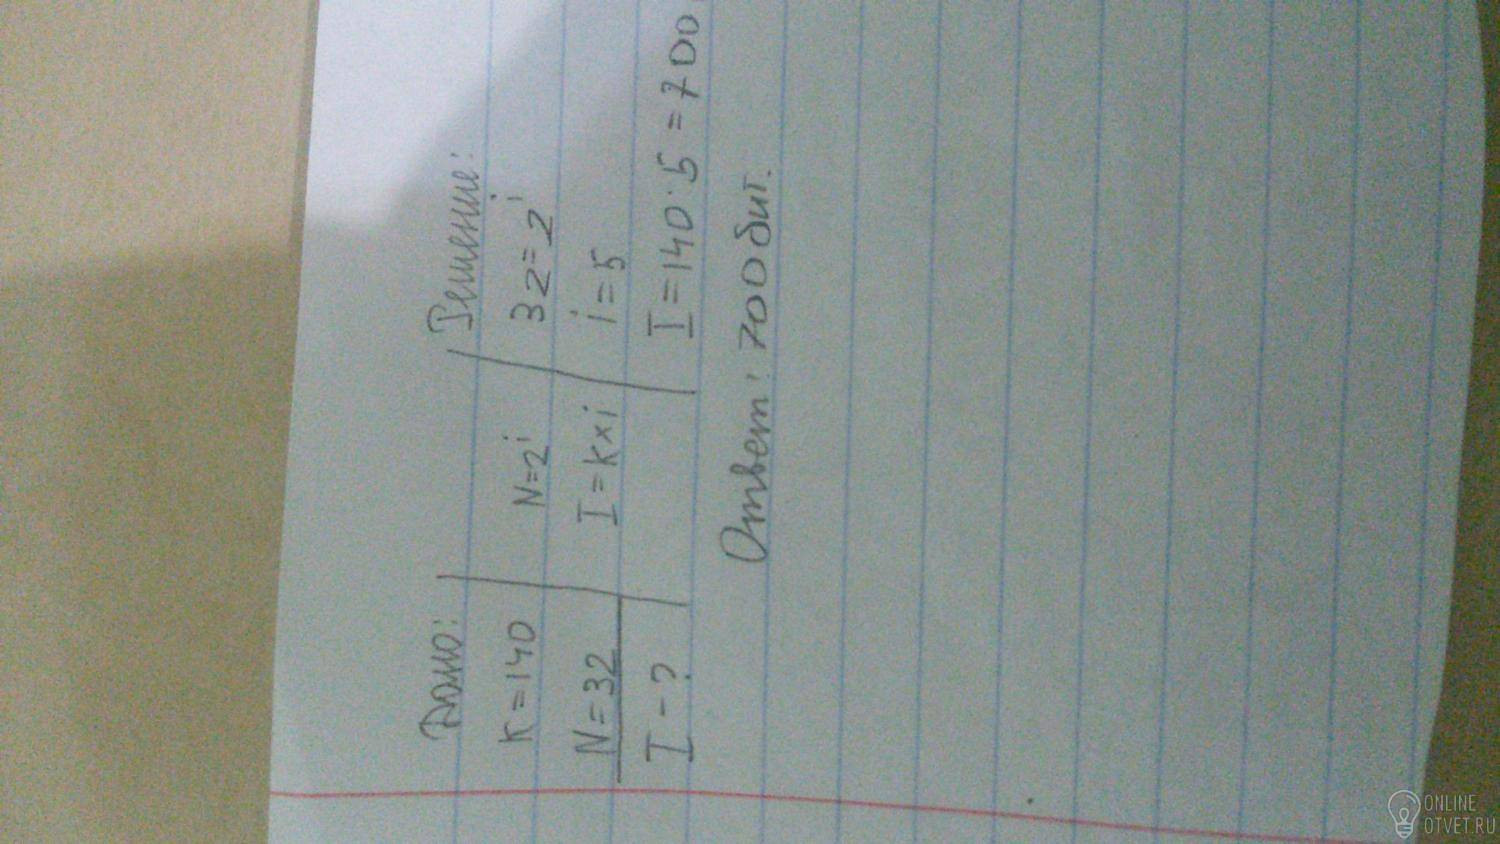 Дано:
K=140
N=32
I-?
N=2^i
I=K×i
Решение:
32=2^i
i=5
I=140·5=700
Ответ: 700 бит.
ONLINE
OTVET.RU